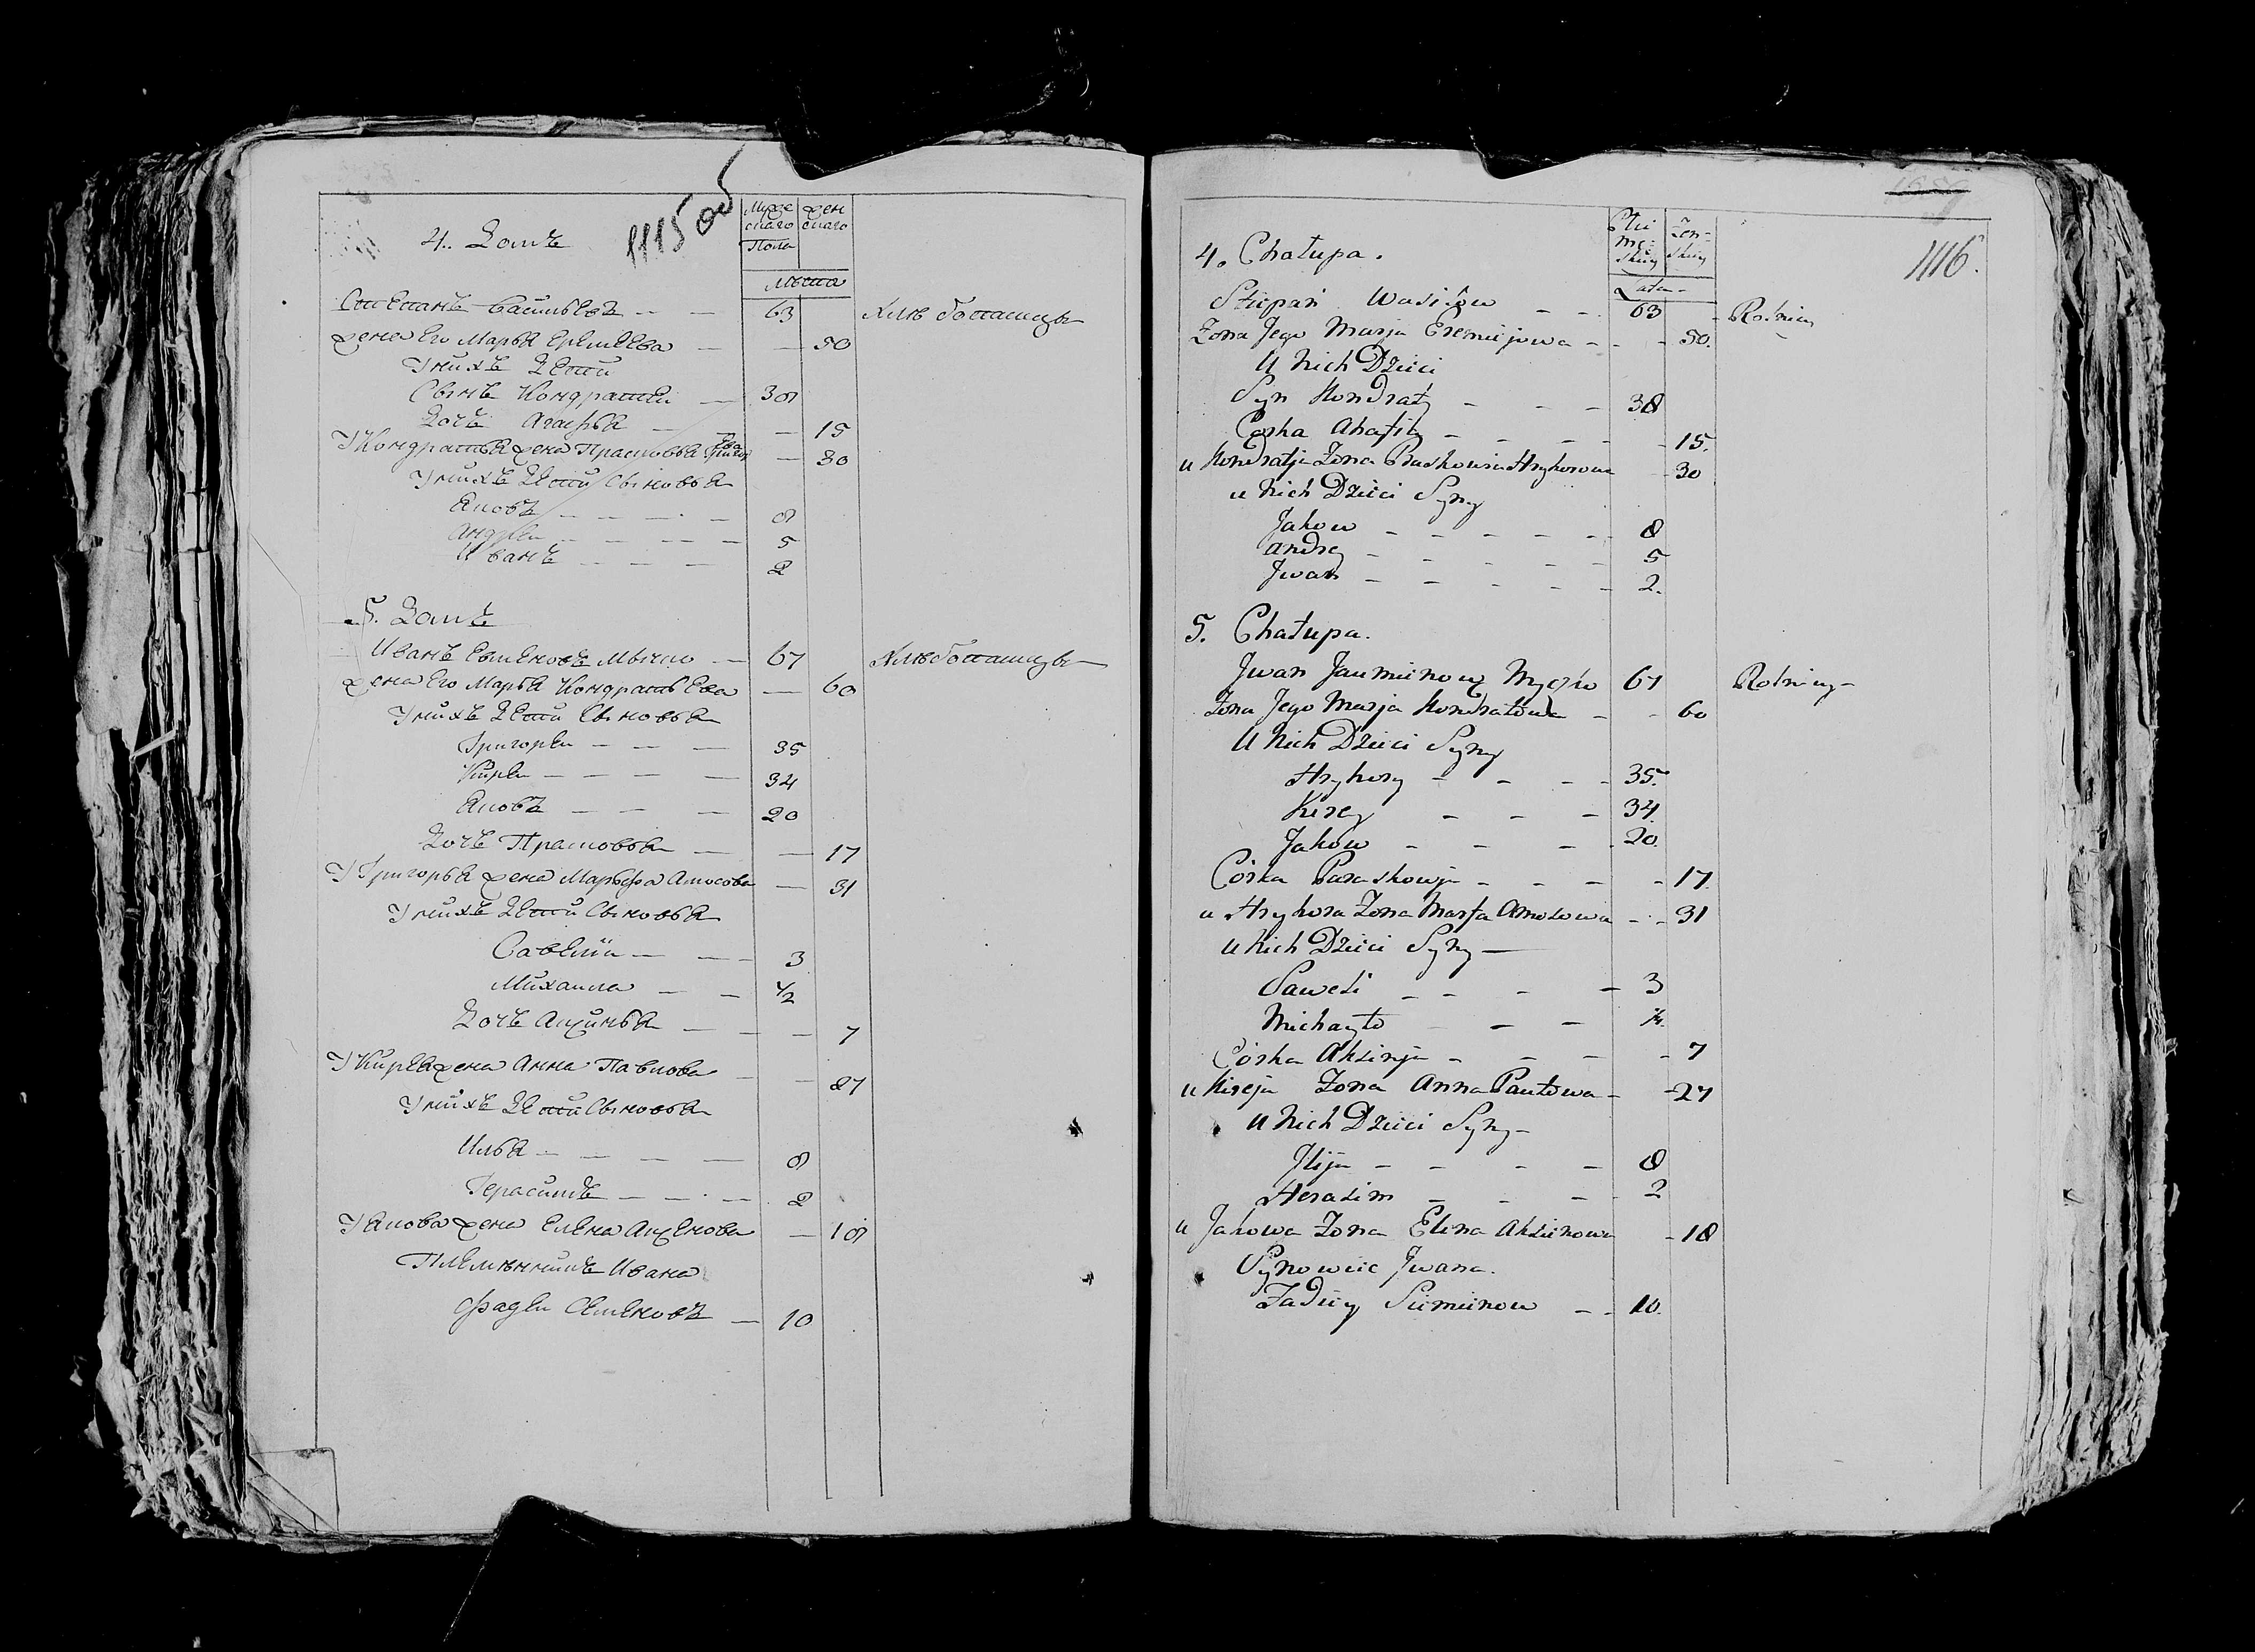 4. Домъ
1115 об
Мужескаго
женскаго
Пола
Лѣта
Степанъ Васильевъ — — 63 Хлѣбопашецъ
жена Его Марья Еремеева — — 50
У нихъ Дети
Сынъ Кондратей — 38
Дочь Агафья — — 15
У Кондратья жена Прасковья Григорьева — 30
У нихъ Дети Сыновья
Яковъ — — — — 8
Андрей — — — — 5
Иванъ — — — 2
5. Домъ
Иванъ Евменовъ Мычко — 67 Хлѣбопашецъ
жена Его Марья Кондратьева — 60
У нихъ Дети Сыновья
Григорей — — — 35
Кирей — — — — 34
Яковъ — — — 20
Дочь Прасковья — — 17
У Григорья жена Марьфа Амосова — 31
У нихъ Дети Сыновья
Савелий — — — 3
Михаила — — 1/2
Дочь Аксинья — — — 7
У Кирея жена Анна Павлова — — 27
У нихъ Дети Сыновья
Илья — — — — 8
Герасимъ — — — 2
У Якова жена Елена Аксенова — 18
Племянникъ Ивана
Фадей Семеновъ — 10
1116.
4. Chałupa.
Męzkiey
Zenskiey
Lata
Stiepan Wasilow — — 63 Rolnicy
Zona Jego Marja Eremiejowa — — 50.
U Nich Dzieci
Syn Kondraty — — — 38
Corka Ahafia — — — — 15.
u Kondratja Zona Praskowia Hryhorowa — 30
u Nich Dzieci Syny
Jakow — — — — — 8
Andrey — — — — — 5
Jwan — — — — — 2.
5. Chałupa.
Jwan Jaumienow Myczko 67 Rolnicy
Zona Jego Marja Kondratowa — — 60
U Nich Dzieci Syny
Hryhory — — — — 35.
Kirey — — — 34.
Jakow — — — — 20.
Córka Paraskowja — — — — 17.
u Hryhora Zona Marfa Amosowa — — 31
u Nich Dzieci Syny —
Saweli — — — — 3
Michayło — — —
Córka Aksinja — — — — 7
u Kireja Zona Anna Pawłowa — — 27
U Nich Dzieci Syny —
Jlija — — — — 8
Herasim — — — — 2
u Jakowa Zona Elena Aksienowa — 18
Synowiec Jwana.
Fadiey Siemienow — — 10.